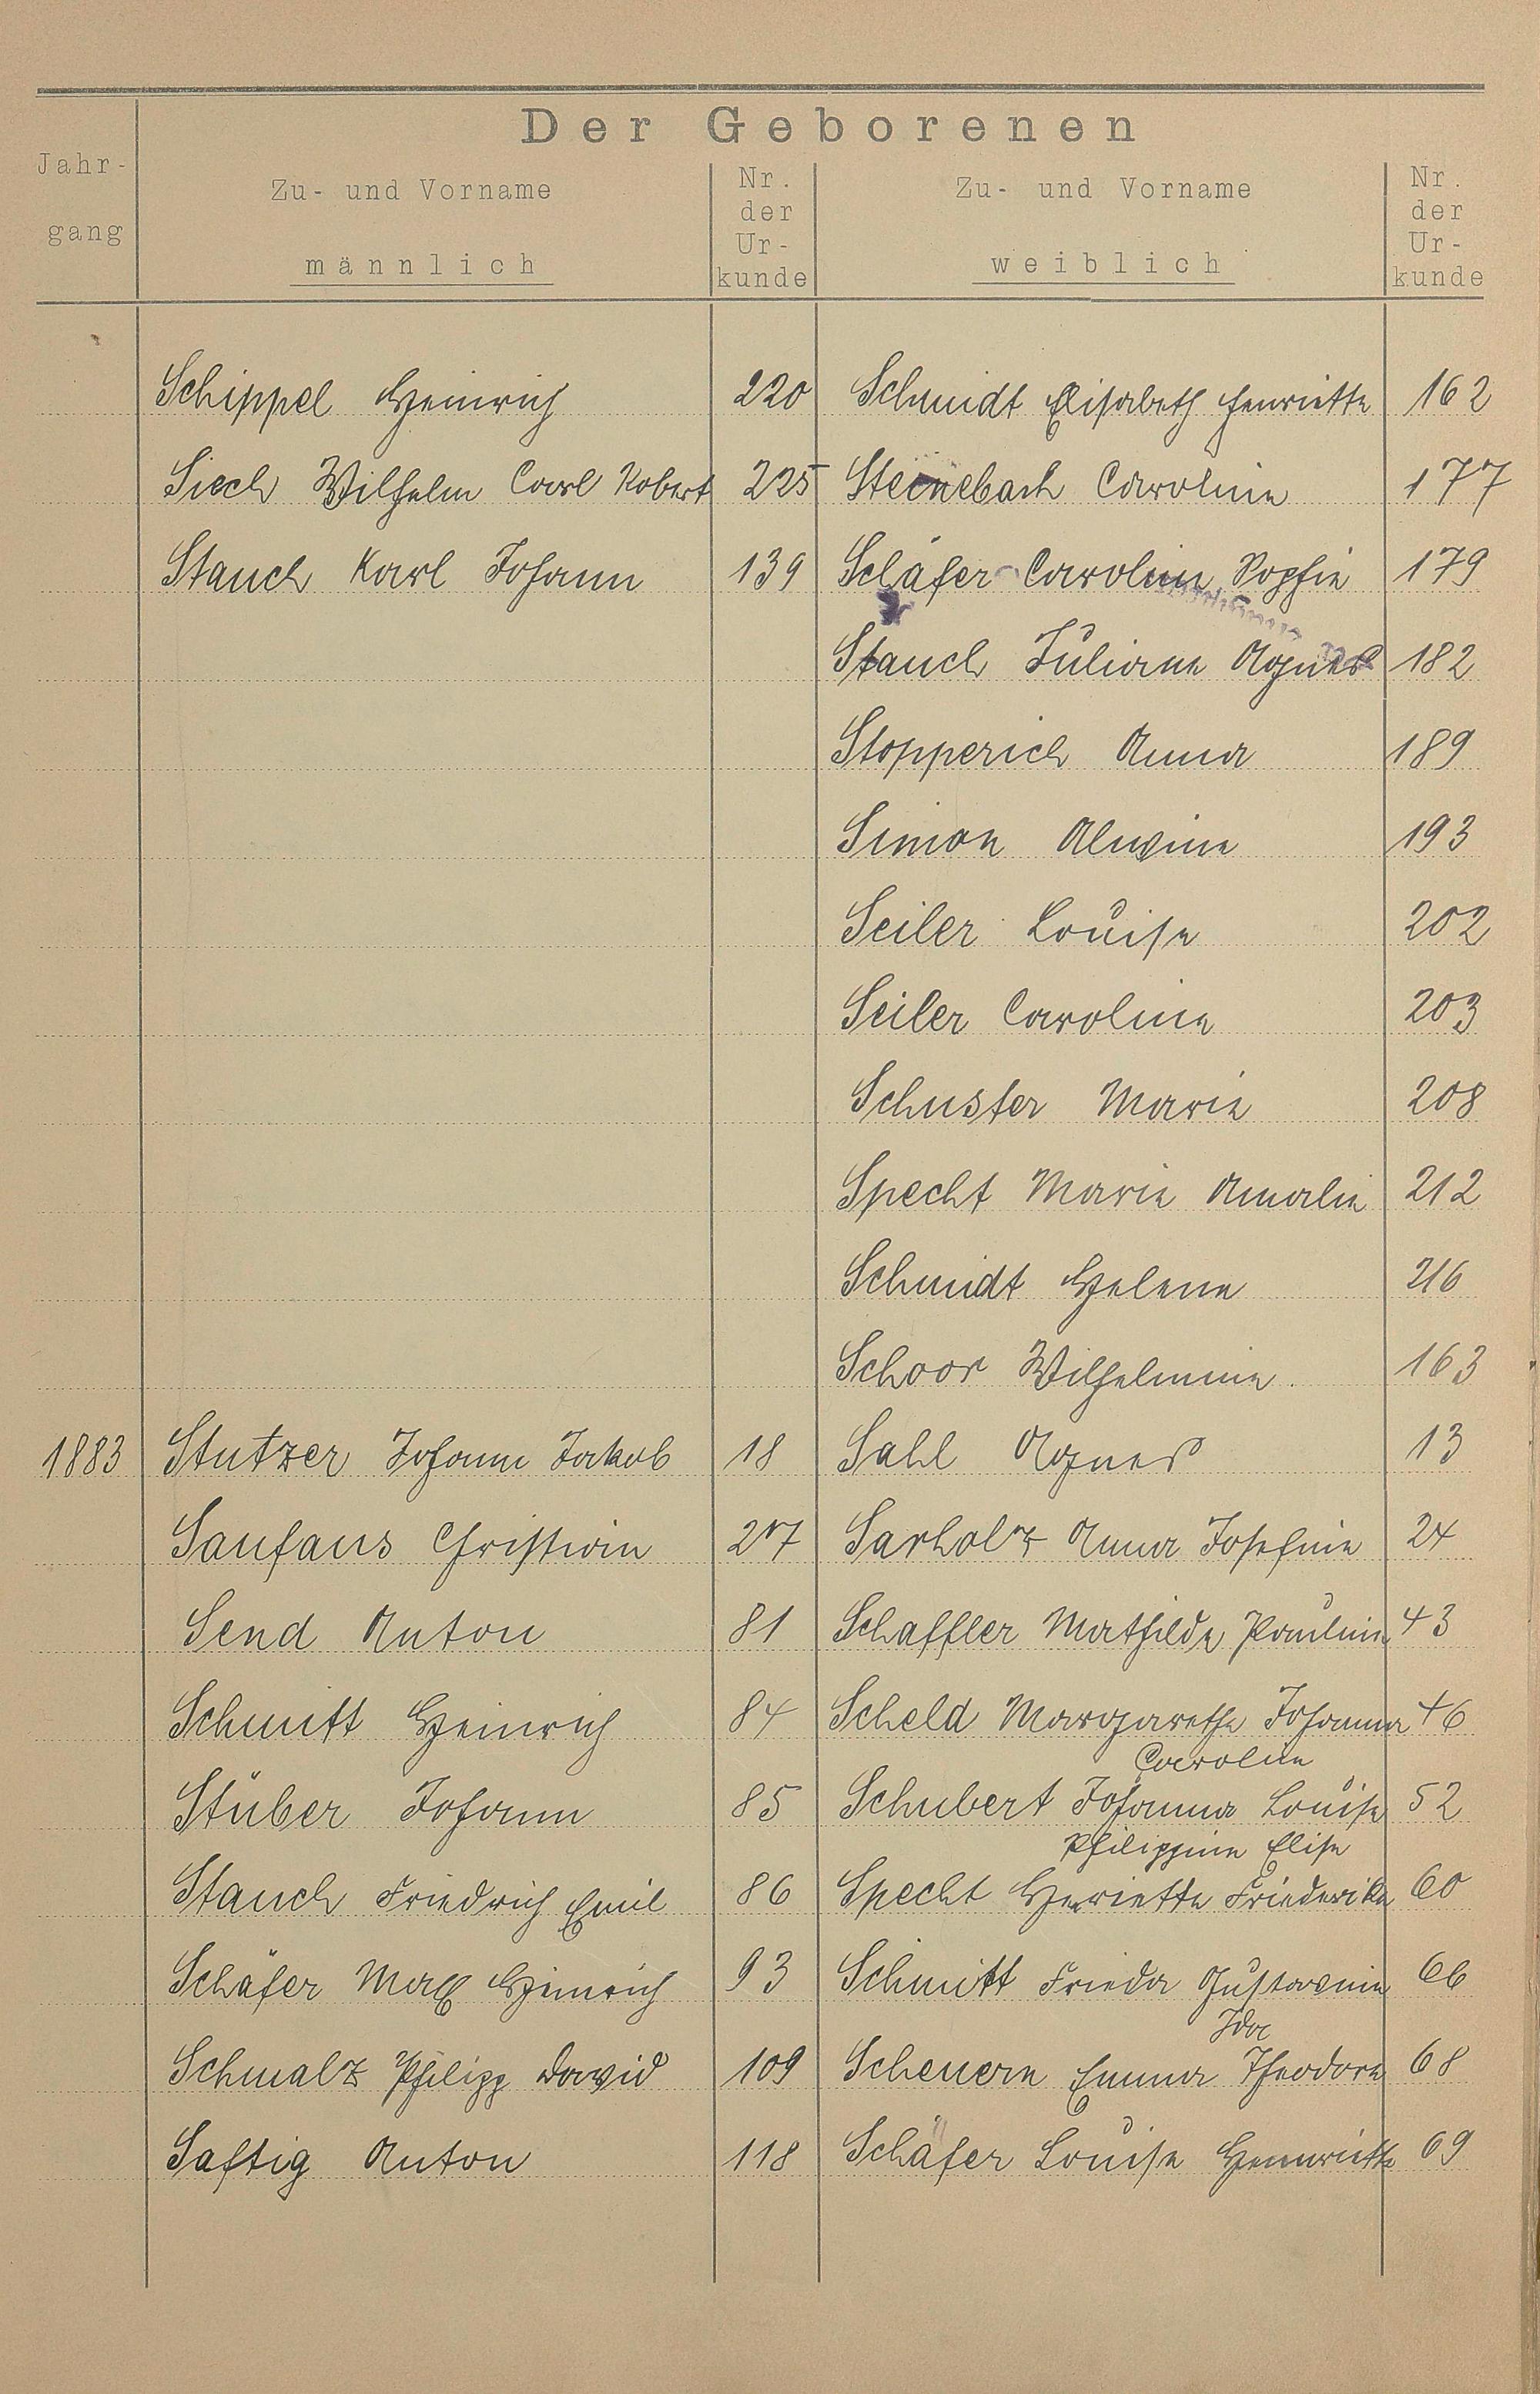 Der Geborenen
Jahr-
gang
Zu- und Vorname
männlich
Nr.
der
Ur-
kunde
Zu- und Vorname
weiblich
Nr.
der
Ur-
kunde
Schippel Heinrich 220 Schmidt Elisabeth Henriette 162
Siech Wilhelm Carl Robert 225 Steinebach Caroline 177
Stauch Karl Johann 139 Schäfer Carolin Sophie 179
Stauch Juliane Agnes 182
Stopperich Anna 189
Simon Alwine 193
Seiler Louise 202
Seiler Caroline 203
Schuster Marie 208
Specht Marie Amalie 212
Schmidt Helene 216
Schoor Wilhelmine 163
1883 Stutzer Johann Jakob 18 Sahl Agnes 13
Saufaus Christian 27 Sarholz Anna Josefine 24
Send Anton 81 Schaffler Mathilde Pauline 43
Schmitt Heinrich 84 Scheld Margarethe Johanna 46
Caroline
Stüber Johann 85 Schubert Johanna Louise 52
Philippine Elise
Stauch Friedrich Emil 86 Specht Henriette Friederike 60
Schäfer Max Heinrich 93 Schmitt Frieda Gustavine 66
Ida
Schmalz Philipp David 109 Scheuern Emma Theodore 68
Saftig Anton 118 Schäfer Louise Hennriette 69